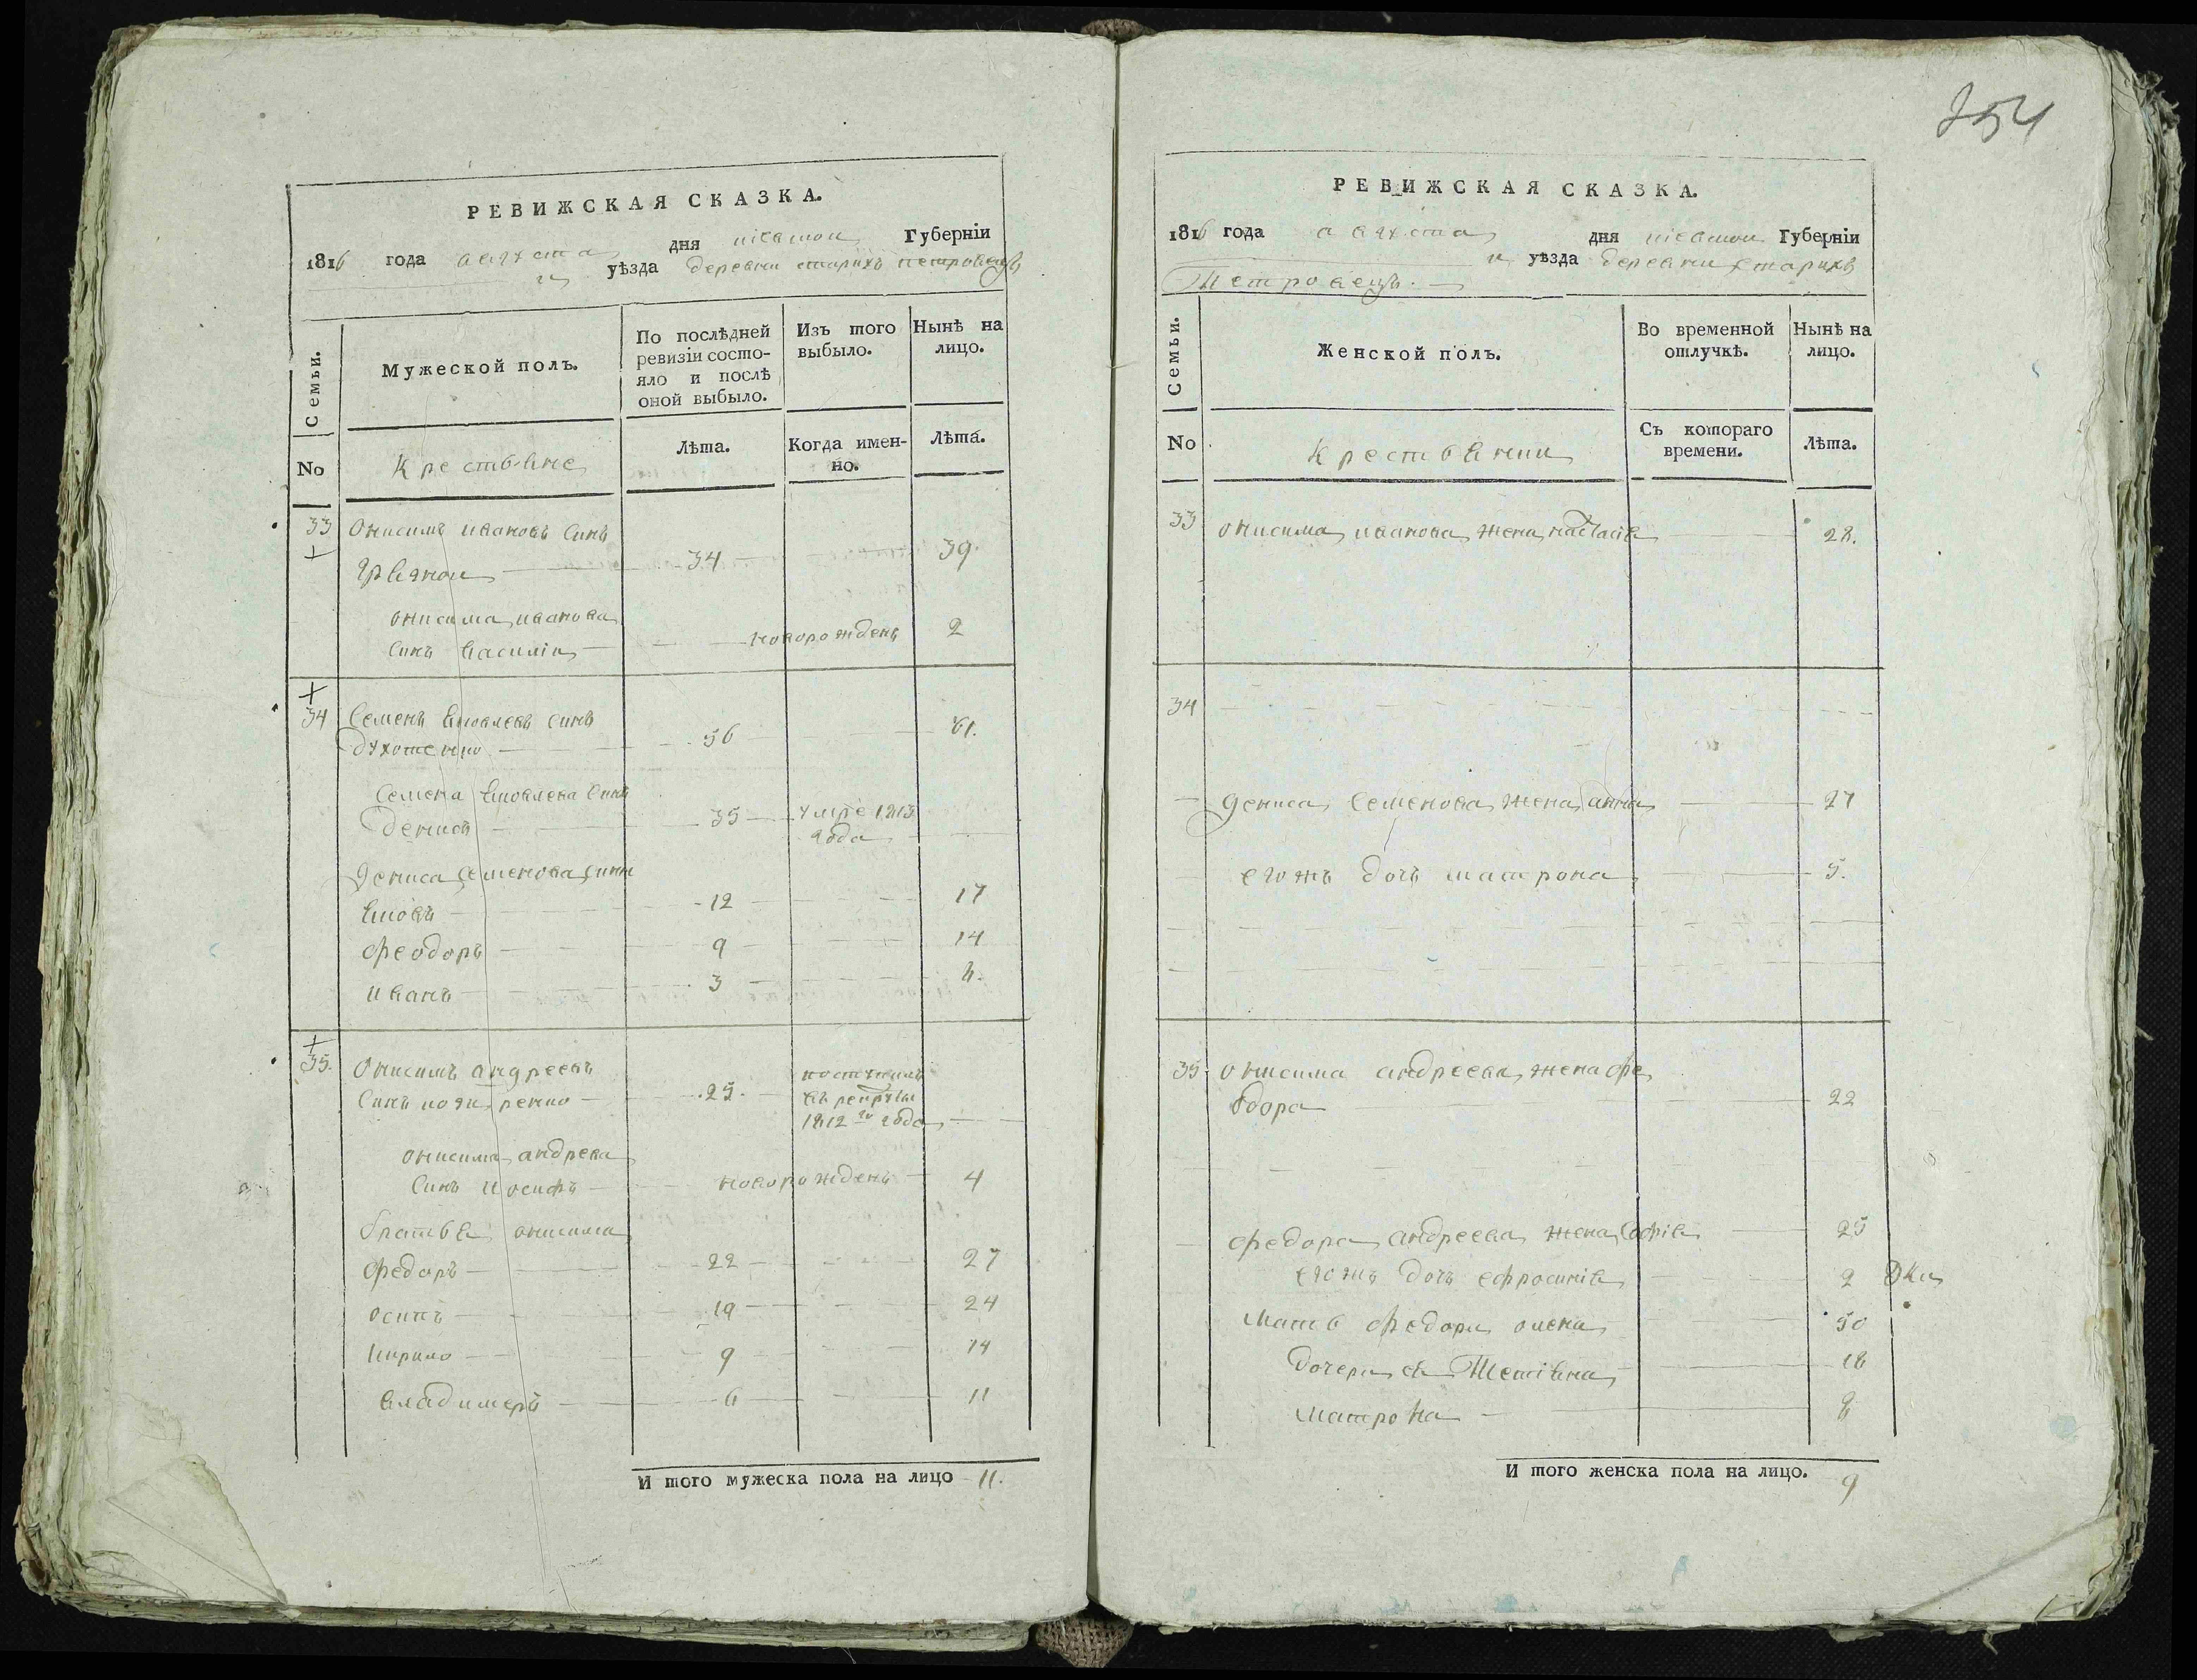 РЕВИЖСКАЯ СКАЗКА.
1816 года августа дня кіевской Губерніи
уѣзда деревни старихъ петровецъ
Семьи.
Мужеской полъ.
По послѣдней ревизіи состояло и послѣ оной выбыло.
Изъ того выбыло.
Нынѣ на лицо.
No
Крестьяне
Лѣта.
Когда именно.
Лѣта.
33 Онисимъ ивановъ синъ
34 39.
онисима иванова
синъ василій новорожденъ 2
34 Семенъ яковлевъ синъ
56 61.
Семена яковлева синъ
Денисъ 35 умре 1813
года
Дениса семенова сини
яковъ 12 17
феодоръ 9 14
иванъ 3 8.
35. Онисимъ андреевъ
синъ 25. поступилъ
въ рекруты
1812 го года
онисима андреева
синъ иосифъ новорожденъ 4
братья онисима
Федоръ 22 27
осипъ 19 24
кирило 9 14
владимеръ 6 11
И того мужеска пола на лицо 11.
354
РЕВИЖСКАЯ СКАЗКА.
1816 года августа дня кіевской Губерніи
уѣзда деревни старихъ
Петровецъ.
Семьи.
Женской полъ.
Во временной отлучкѣ.
Нынѣ на лицо.
No
Крестьянки
Съ котораго времени.
Лѣта.
33 онисима иванова жена настасія 28.
34
дениса семенова жена анна 27
егожъ дочь матрона 5.
35 онисима андреева жена фе
одора 22
федора андреева жена софія 25
егожъ дочь ефросинія 2
мать федора олена 50
дочери ея Тетіяна 18
матрона 8
И того женска пола на лицо. 9